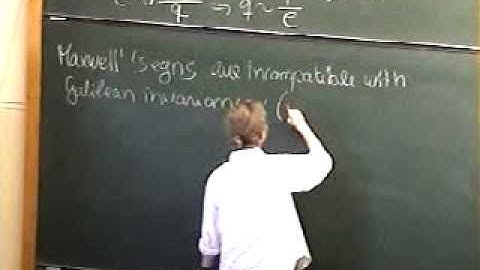 q ⇒ q ~ 1/e
Maxwell's eqns are incompatible with
Galilean invariance (